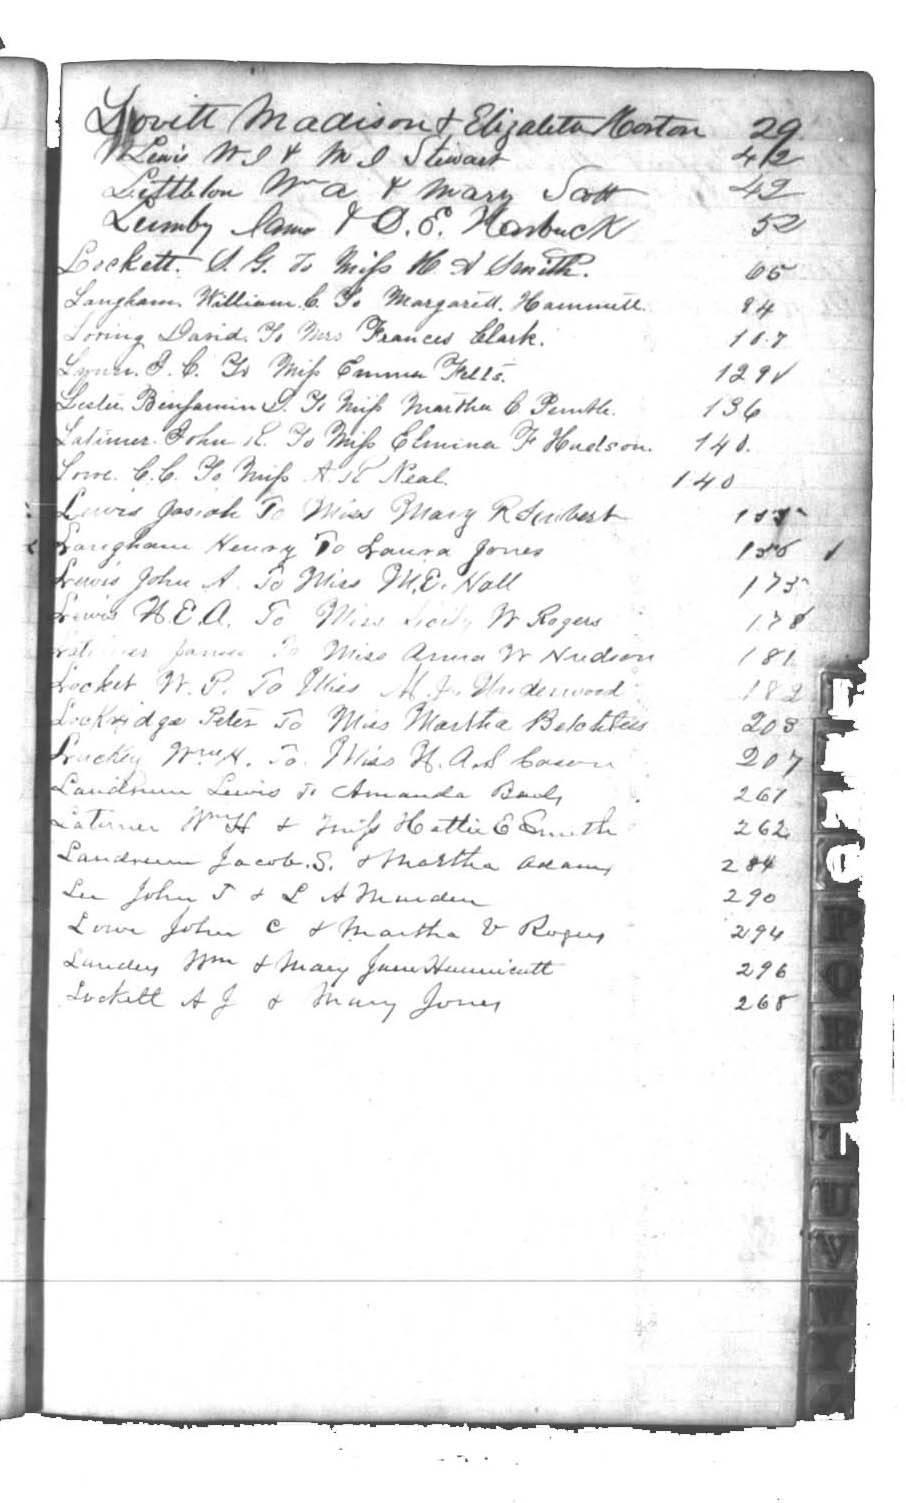 Lovitt Madison & Elizabeth Horton 29
Lewis W J & M J Stewart 42
Littleton Wm A & Mary Scott 42
Lumby & D. E. Harbuck 52
Lockett. S. G. To Miss H A Smith. 65
Langham. William. C. To Margarett. Hammett. 94
Loring David. To Mrs Frances Clark. 107
J. C. To Miss Emma Fells. 129
Leslie. Benjamin To Miss Martha C 136
Latimer. John R. To Miss Elmina F Hudson. 140.
Lowe. C. C. To Miss A Neal. 140
Lewis Josiah To Miss Mary R
Langham Henry To Laura Jones
Lewis John A. To Miss M. E. Hall 175
Lewis H. E. A. To Miss W Rogers 178
Latimer James To Miss Anna W Hudson 181
Locket W. P. To Miss M. J. Underwood 182
Lockridge Peter To Miss Martha 203
Luckey Wm H. To. Miss H. A. S Cason 207
Landrum Lewis To Amanda 261
Latimer Wm H & Miss Hattie E Smith 262
Landrum Jacob. S. & Martha Adams 284
Lee John T & L A 290
Lowe John C & Martha V Rogers 294
Landers Wm & Mary Jane Hunnicutt 296
Lockett A J & Mary Jones 268
P
O
R
S
T
U
V
W